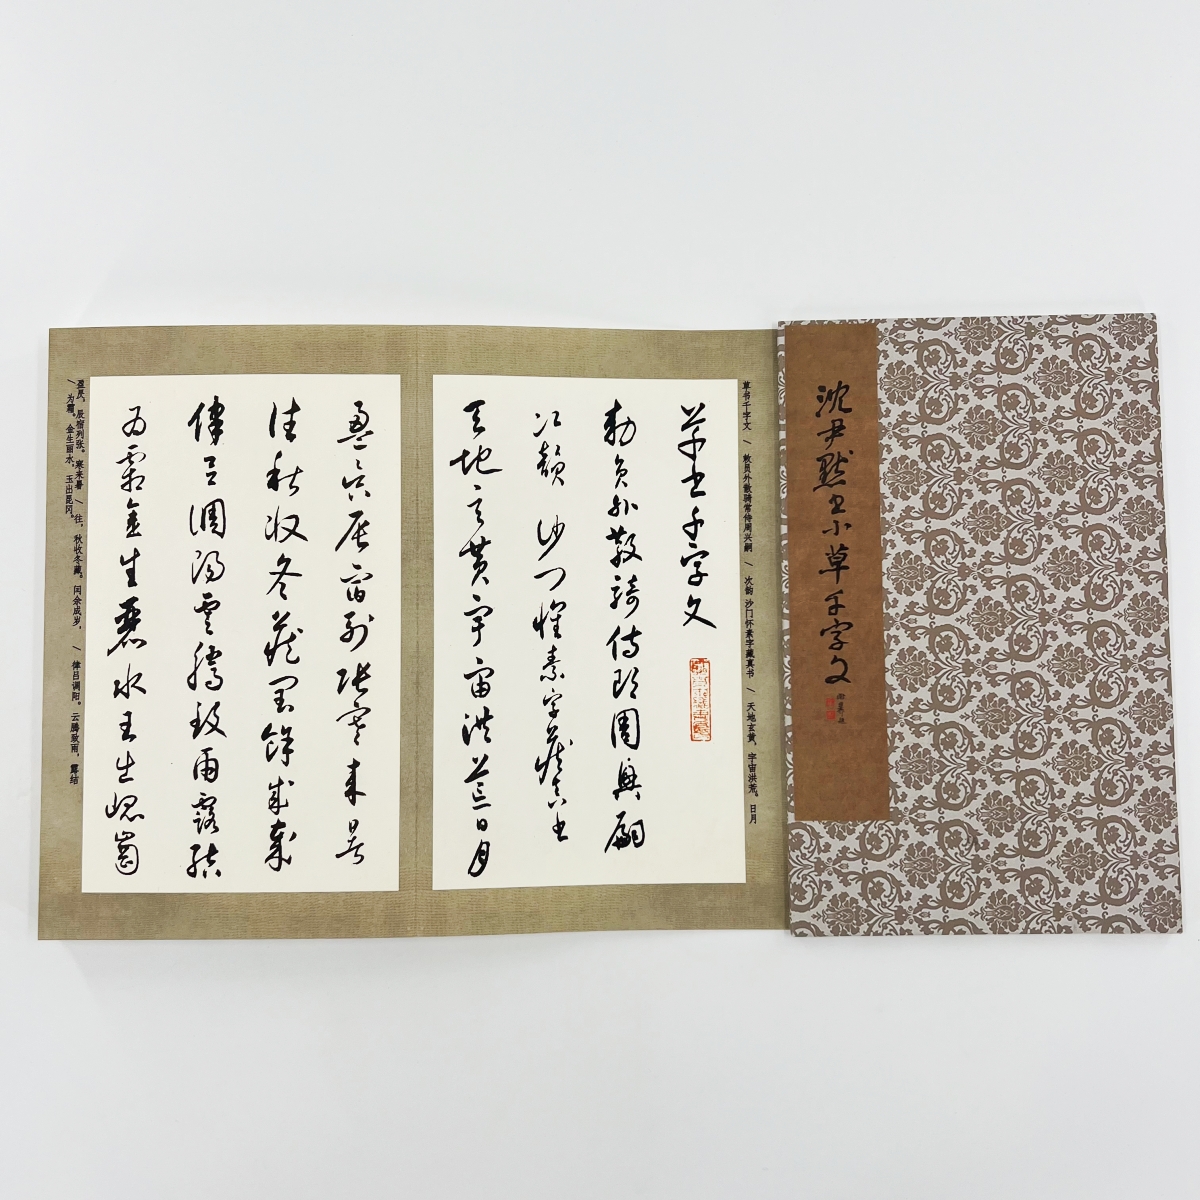 沈尹默书小草千字文
草书千字文 / 敕员外散骑常侍周兴嗣 / 次韵 沙门怀素字藏真书 / 天地玄黄，宇宙洪荒。日月
草书千字文
勅員外散騎侍郎周興嗣
次韻 沙门懷素字藏真书
天地玄黄宇宙洪荒日月
盈昃辰宿列張寒来暑
往秋收冬藏閏餘成歲
律吕調陽雲騰致雨露結
为霜金生麗水玉出崐崗
盈昃，辰宿列张。寒来暑 / 往，秋收冬藏。闰余成岁， / 律吕调阳。云腾致雨，露结
/ 为霜。金生丽水，玉出昆冈。